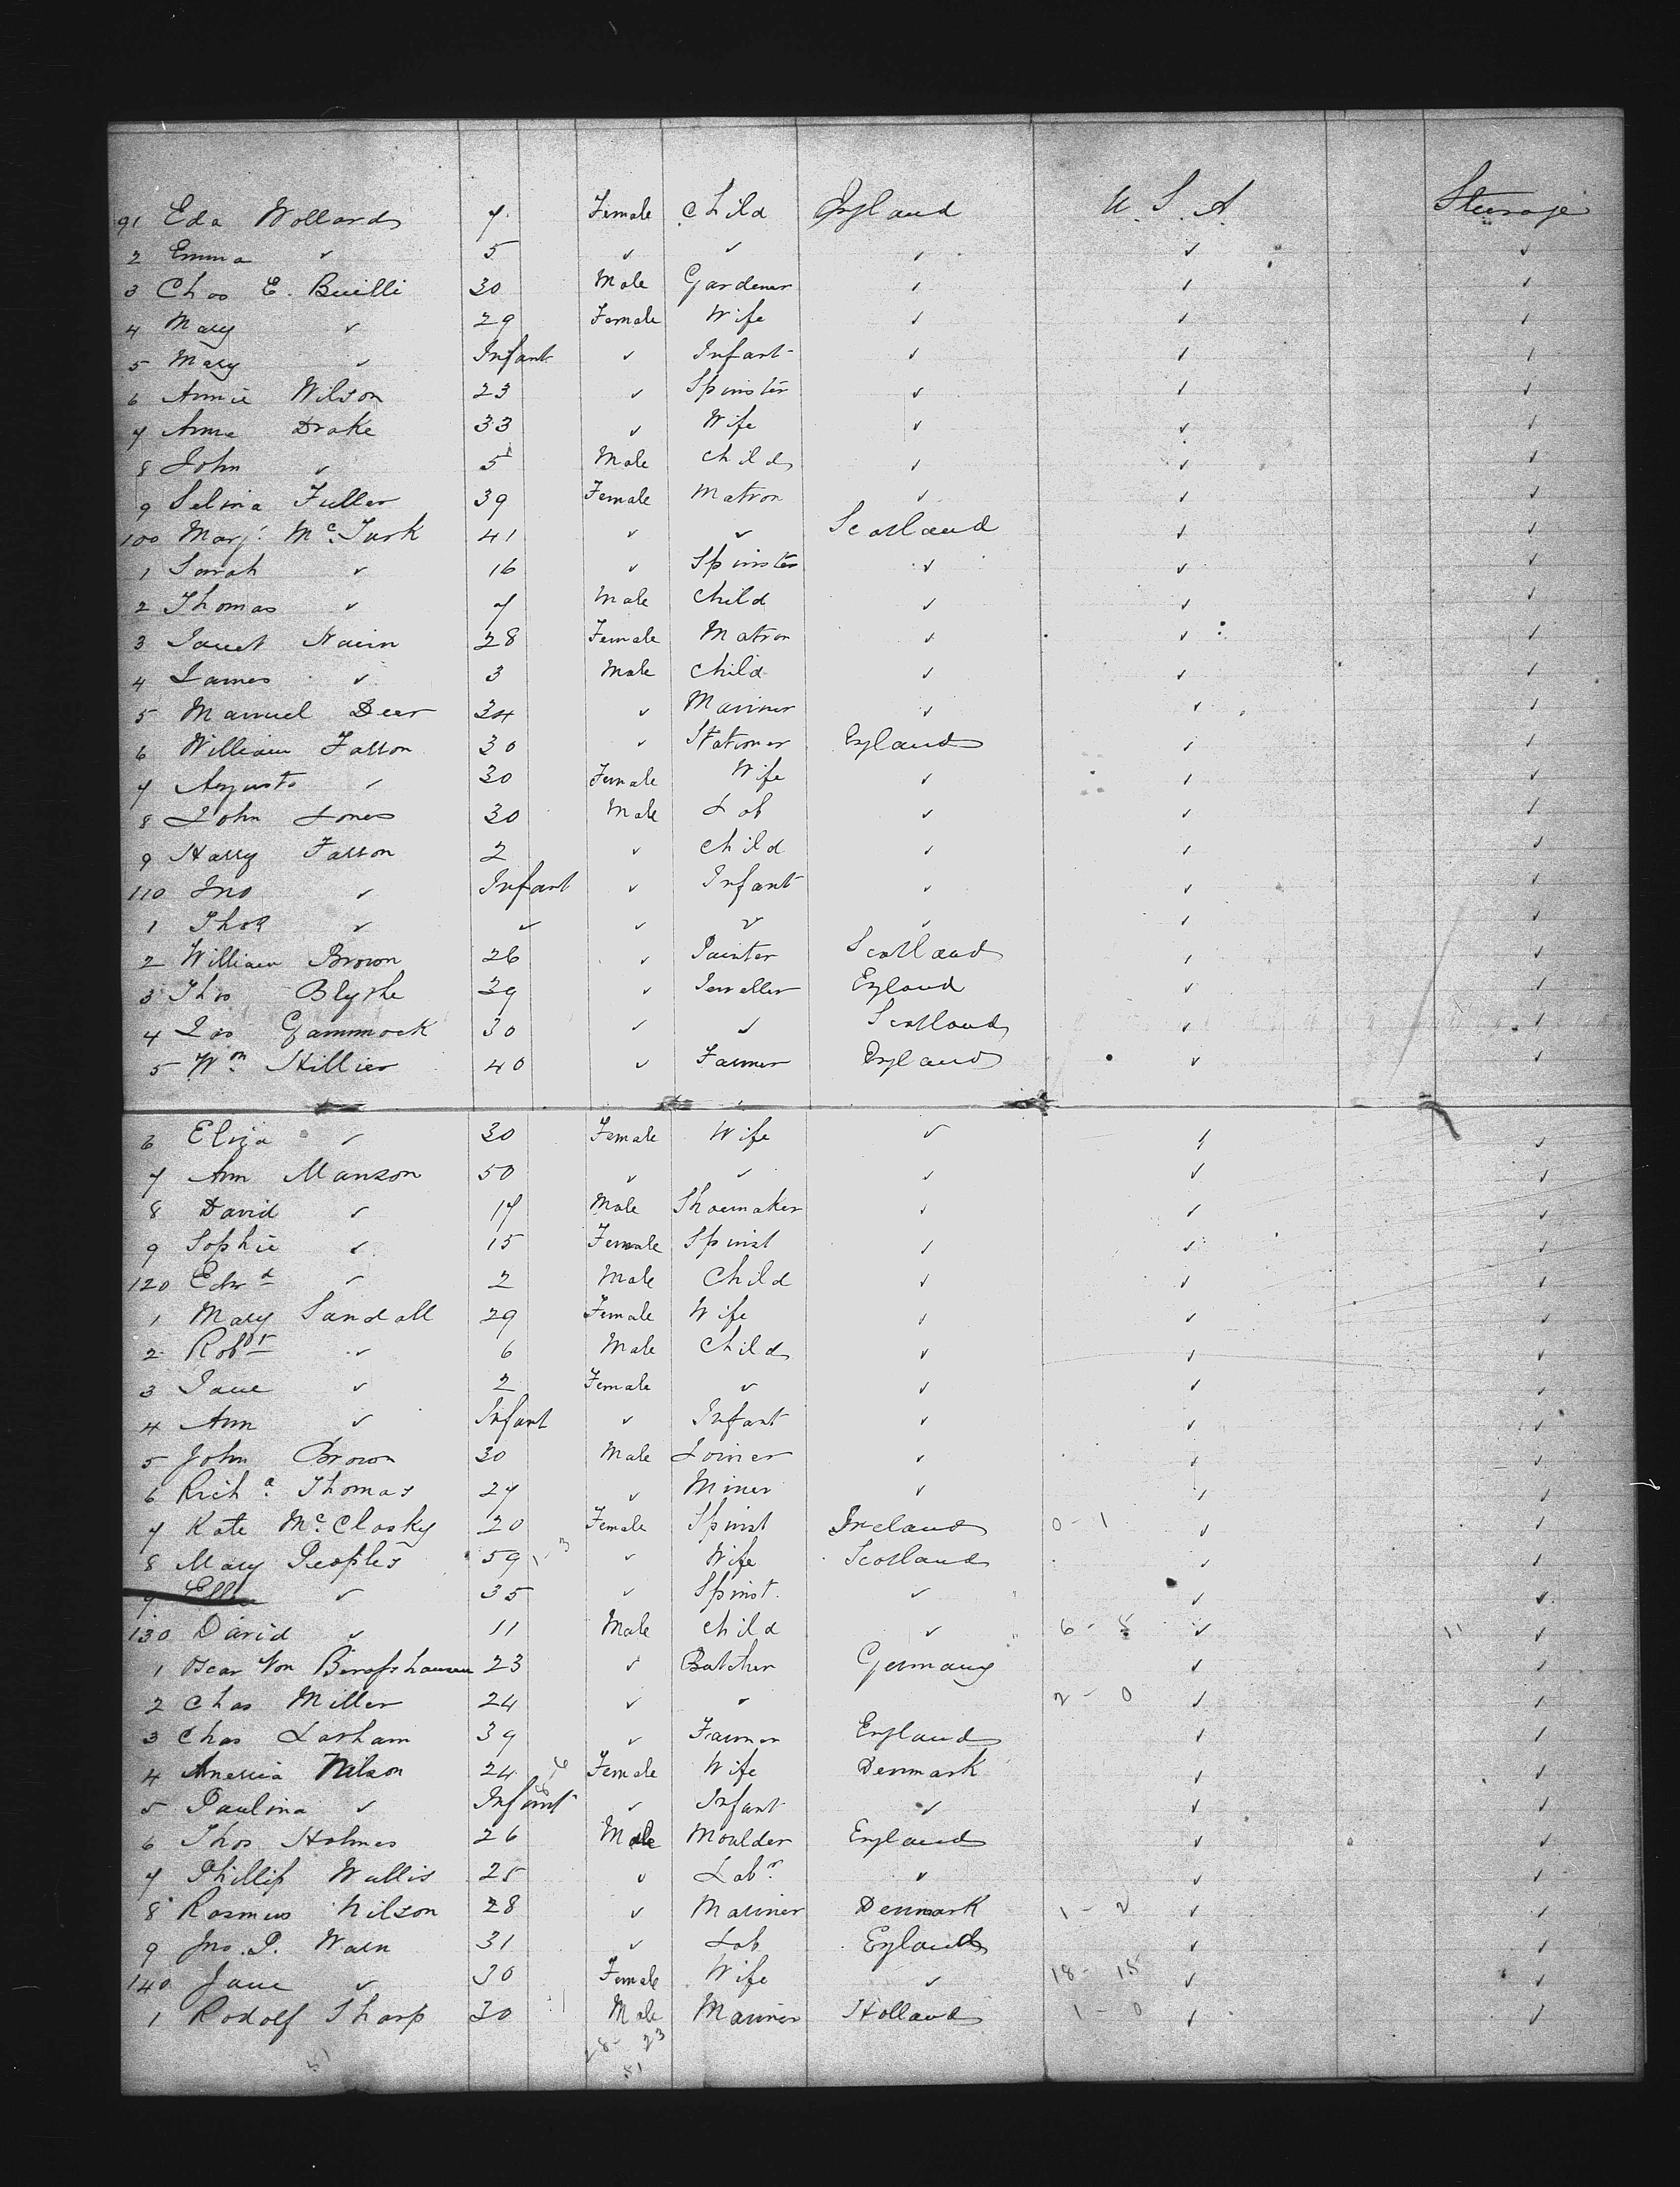 91 Eda Wollards 7 Female Child England U.S.A. Steerage
2 Emma ✓ 5 ✓ ✓ ✓ ✓ ✓
3 Chas E. Builli 30 Male Gardener ✓ ✓ ✓
4 Mary ✓ 29 Female Wife ✓ ✓ ✓
5 Mary ✓ Infant ✓ Infant ✓ ✓ ✓
6 Annie Wilson 23 ✓ Spinster ✓ ✓ ✓
7 Anne Drake 33 ✓ Wife ✓ ✓ ✓
8 John ✓ 5 Male Child ✓ ✓ ✓
9 Selina Fuller 39 Female Matron ✓ ✓ ✓
100 Marj: Mc.Turk 41 ✓ ✓ Scotland ✓ ✓
1 Sarah ✓ 16 ✓ Spinster ✓ ✓ ✓
2 Thomas ✓ 7 Male Child ✓ ✓ ✓
3 Janet Nairn 28 Female Matron ✓ ✓ ✓
4 James ✓ 3 Male Child ✓ ✓ ✓
5 Manuel Deer 34 ✓ Mariner ✓ ✓ ✓
6 William Fasson 30 ✓ Stationer England ✓ ✓
7 Augusta ✓ 30 Female Wife ✓ ✓ ✓
8 John Jones 30 Male Lab ✓ ✓ ✓
9 Harry Fasson 2 ✓ Child ✓ ✓ ✓
110 Jno ✓ Infant ✓ Infant ✓ ✓ ✓
1 Thos ✓ ✓ ✓ ✓ ✓ ✓ ✓
2 William Brown 26 ✓ Painter Scotland ✓ ✓
3 Thos Blythe 39 ✓ Jeweller England ✓ ✓
4 Jas Gammock 30 ✓ ✓ Scotland ✓ ✓
5 Wm Hillier 40 ✓ Farmer England ✓ ✓
6 Eliza ✓ 30 Female Wife ✓ ✓ ✓
7 Ann Manson 50 ✓ ✓ ✓ ✓ ✓
8 David ✓ 17 Male Shoemaker ✓ ✓ ✓
9 Sophie ✓ 15 Female Spinst ✓ ✓ ✓
120 Edwd ✓ 2 Male Child ✓ ✓ ✓
1 Mary Sandall 29 Female Wife ✓ ✓ ✓
2 Robt ✓ 6 Male Child ✓ ✓ ✓
3 Jane ✓ 2 Female ✓ ✓ ✓ ✓
4 Ann ✓ Infant ✓ Infant ✓ ✓ ✓
5 John Brown 30 Male Joiner ✓ ✓ ✓
6 Richd Thomas 27 ✓ Miner ✓ ✓ ✓
7 Kate Mc.Closky 20 Female Spinst Ireland 0-1 ✓ ✓
8 Mary Peoples 59 ✓ Wife Scotland ✓ ✓
9 ✓ 35 ✓ Spinst. ✓ ✓ ✓
130 David ✓ 11 Male Child ✓ 6-5 ✓ 11 ✓
1 Oscar Von 23 ✓ Butcher Germany ✓ ✓
2 Chas Miller 24 ✓ ✓ 2-0 ✓ ✓
3 Chas Latham 39 ✓ Farmer England ✓ ✓
4 Nilson 24 Female Wife Denmark ✓ ✓
5 Paulina ✓ Infant ✓ Infant ✓ ✓ ✓
6 Thos Holmes 26 Male Moulder England ✓ ✓
7 Phillip Wallis 25 ✓ Labr ✓ ✓ ✓
8 Rasmus Nilson 28 ✓ Mariner Denmark 1-2 ✓ ✓
9 Jno. P. Wain 31 ✓ Lab England ✓ ✓
140 Jane ✓ 30 Female Wife ✓ 18-15 ✓ ✓
1 Rodolf Sharp 30 Male Mariner Holland 1-0 ✓ ✓
28-23
51 51